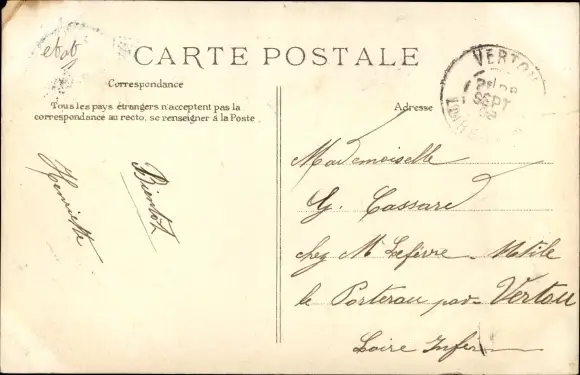 CARTE POSTALE
Correspondance
Tous les pays étrangers n'acceptent pas la
correspondance au recto, se renseigner à la Poste
Bientôt
Henriette
Adresse
VERTOU
SEPT
Mademoiselle
G. Cassard
chez M Lefèvre
le Portereau par Vertou
Loire Infér